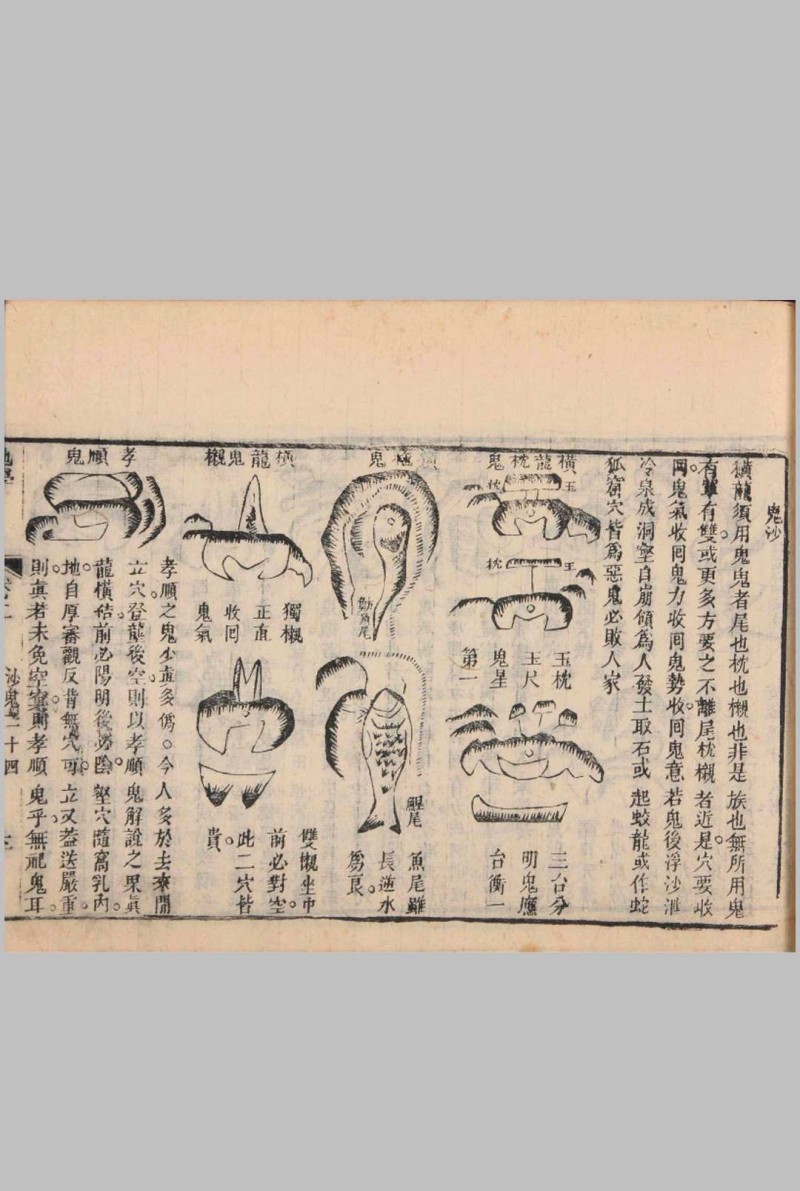 鬼沙
橫龍須用鬼鬼者尾也枕也櫬也非是族也無所用鬼
有單有雙或更多方要之不離尾枕櫬者近是穴要收
回鬼氣收回鬼力收回鬼勢收回鬼意若鬼後浮沙
冷泉成洞空自崩傾為人發土取石或起蛟龍或作蛇
狐窟穴皆為惡鬼必敗人家
橫龍枕鬼
玉
枕
玉
枕
玉枕
玉尺
鬼星
第一
三台分
明鬼應
台衡一
鬼
魚尾
鯉尾
魚尾雖
長逆水
為良
橫龍鬼櫬
獨櫬
正直
收回
鬼氣
雙櫬坐巾
前必對空
此二穴皆
貴
孝順鬼
孝順之鬼少真多偽今人多於去來開
立穴登龍後空則以孝順鬼解說之果真
龍橫結前必陽明後必陰壑穴隨窩乳內
地自厚審觀反背無穴可立又葢送嚴重
則真者未免空寮則孝順鬼乎無祀鬼耳
沙鬼 二十四